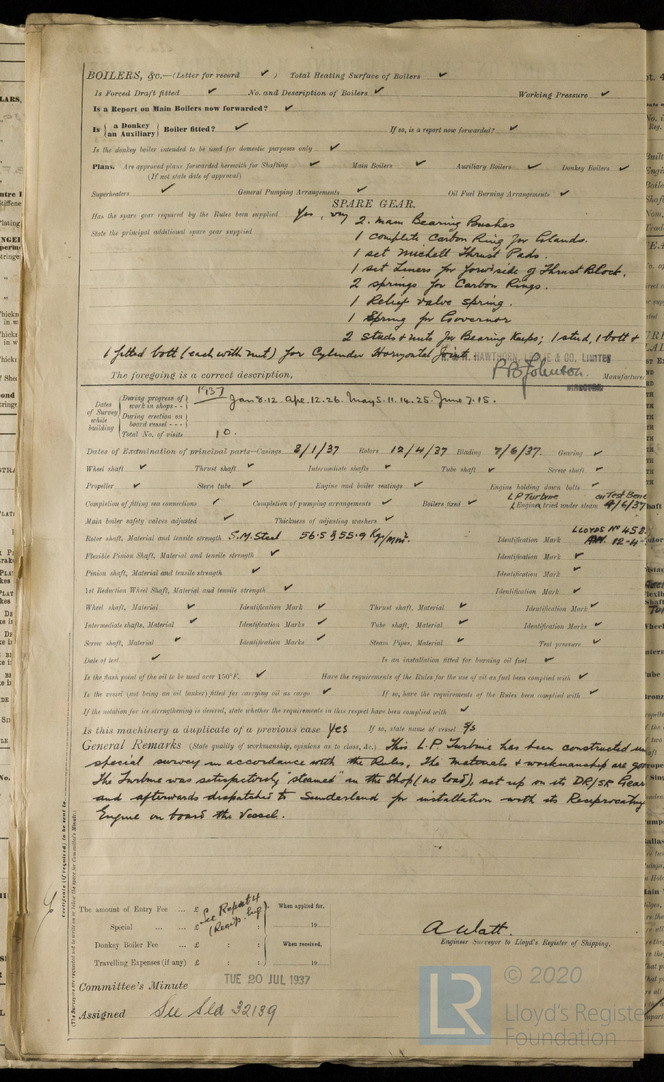 BOILERS, &c.—(Letter for record ✓ ) Total Heating Surface of Boilers ✓
Is Forced Draft fitted ✓ No. and Description of Boilers ✓ Working Pressure ✓
Is a Report on Main Boilers now forwarded? ✓
Is { a Donkey / an Auxiliary } Boiler fitted? ✓ If so, is a report now forwarded? ✓
Is the donkey boiler intended to be used for domestic purposes only ✓
Plans. Are approved plans forwarded herewith for Shafting ✓ Main Boilers ✓ Auxiliary Boilers ✓ Donkey Boilers ✓
(If not state date of approval)
Superheaters ✓ General Pumping Arrangements ✓ Oil Fuel Burning Arrangements ✓
SPARE GEAR.
Has the spare gear required by the Rules been supplied Yes,
State the principal additional spare gear supplied
2. Main Bearing Bushes
1 complete Carbon Ring for Glands.
1 set Michell Thrust Pads.
1 set Liners for forwd side of Thrust Block.
2 springs for Carbon Rings.
1 Relief valve spring.
1 Spring for Governor
2 Studs & nuts for Bearing Keeps; 1 stud, 1 bolt &
1 fitted bolt (each with nut) for Cylinder Horizontal Joint
HAWTHORN, & CO. LIMITED
The foregoing is a correct description, Manufacturer
DIRECTOR
Dates of Survey while building
During progress of work in shops - - 1937 Jan 8.12. Apr. 12.26. May 5.11.14.25. June 7.15.
During erection on board vessel - - -
Total No. of visits 10.
Dates of Examination of principal parts—Casings 8/1/37 Rotors 12/4/37 Blading 7/6/37. Gearing ✓
Wheel shaft ✓ Thrust shaft ✓ Intermediate shafts ✓ Tube shaft ✓ Screw shaft ✓
Propeller ✓ Stern tube ✓ Engine and boiler seatings ✓ Engine holding down bolts ✓
LP Turbine on Test Bene
Completion of fitting sea connections ✓ Completion of pumping arrangements ✓ Boilers fixed ✓ Engine tried under steam /6/37
Main boiler safety valves adjusted ✓ Thickness of adjusting washers ✓
LLOYDS No 458
Rotor shaft, Material and tensile strength S.M. Steel 56.5 & 55.9 Kg/mm². Identification Mark 12-4-
Flexible Pinion Shaft, Material and tensile strength ✓ Identification Mark ✓
Pinion shaft, Material and tensile strength ✓ Identification Mark ✓
1st Reduction Wheel Shaft, Material and tensile strength ✓ Identification Mark ✓
Wheel shaft, Material ✓ Identification Mark ✓ Thrust shaft, Material ✓ Identification Mark ✓
Intermediate shafts, Material ✓ Identification Marks ✓ Tube shaft, Material ✓ Identification Marks ✓
Screw shaft, Material ✓ Identification Marks ✓ Steam Pipes, Material ✓ Test pressure ✓
Date of test ✓ Is an installation fitted for burning oil fuel ✓
Is the flash point of the oil to be used over 150°F. ✓ Have the requirements of the Rules for the use of oil as fuel been complied with ✓
Is the vessel (not being an oil tanker) fitted for carrying oil as cargo ✓ If so, have the requirements of the Rules been complied with ✓
If the notation for ice strengthening is desired, state whether the requirements in this respect have been complied with ✓
Is this machinery a duplicate of a previous case Yes If so, state name of vessel S/s
General Remarks (State quality of workmanship, opinions as to class, &c.) This L.P. Turbine has been constructed un
special survey in accordance with the Rules, The materials & workmanship are
The Turbine was satisfactorily "steamed" in the Shop (no load), set up on its DR/SR Gear
and afterwards dispatched to Sunderland for installation with its Reciprocating
Engine on board the vessel.
Certificate (if required) to be sent to
(The Surveyors are requested not to write on or below the space for Committee's Minute.)
The amount of Entry Fee ... £ : : When applied for,
See Report 4 (Recip. Eng)
Special ... ... £ : : 19
Donkey Boiler Fee ... £ : : When received,
Travelling Expenses (if any) £ : : 19
A. Watt.
Engineer Surveyor to Lloyd's Register of Shipping.
Committee's Minute TUE 20 JUL 1937
Assigned See Sld 32139
LR © 2020
Lloyd's Register
Foundation